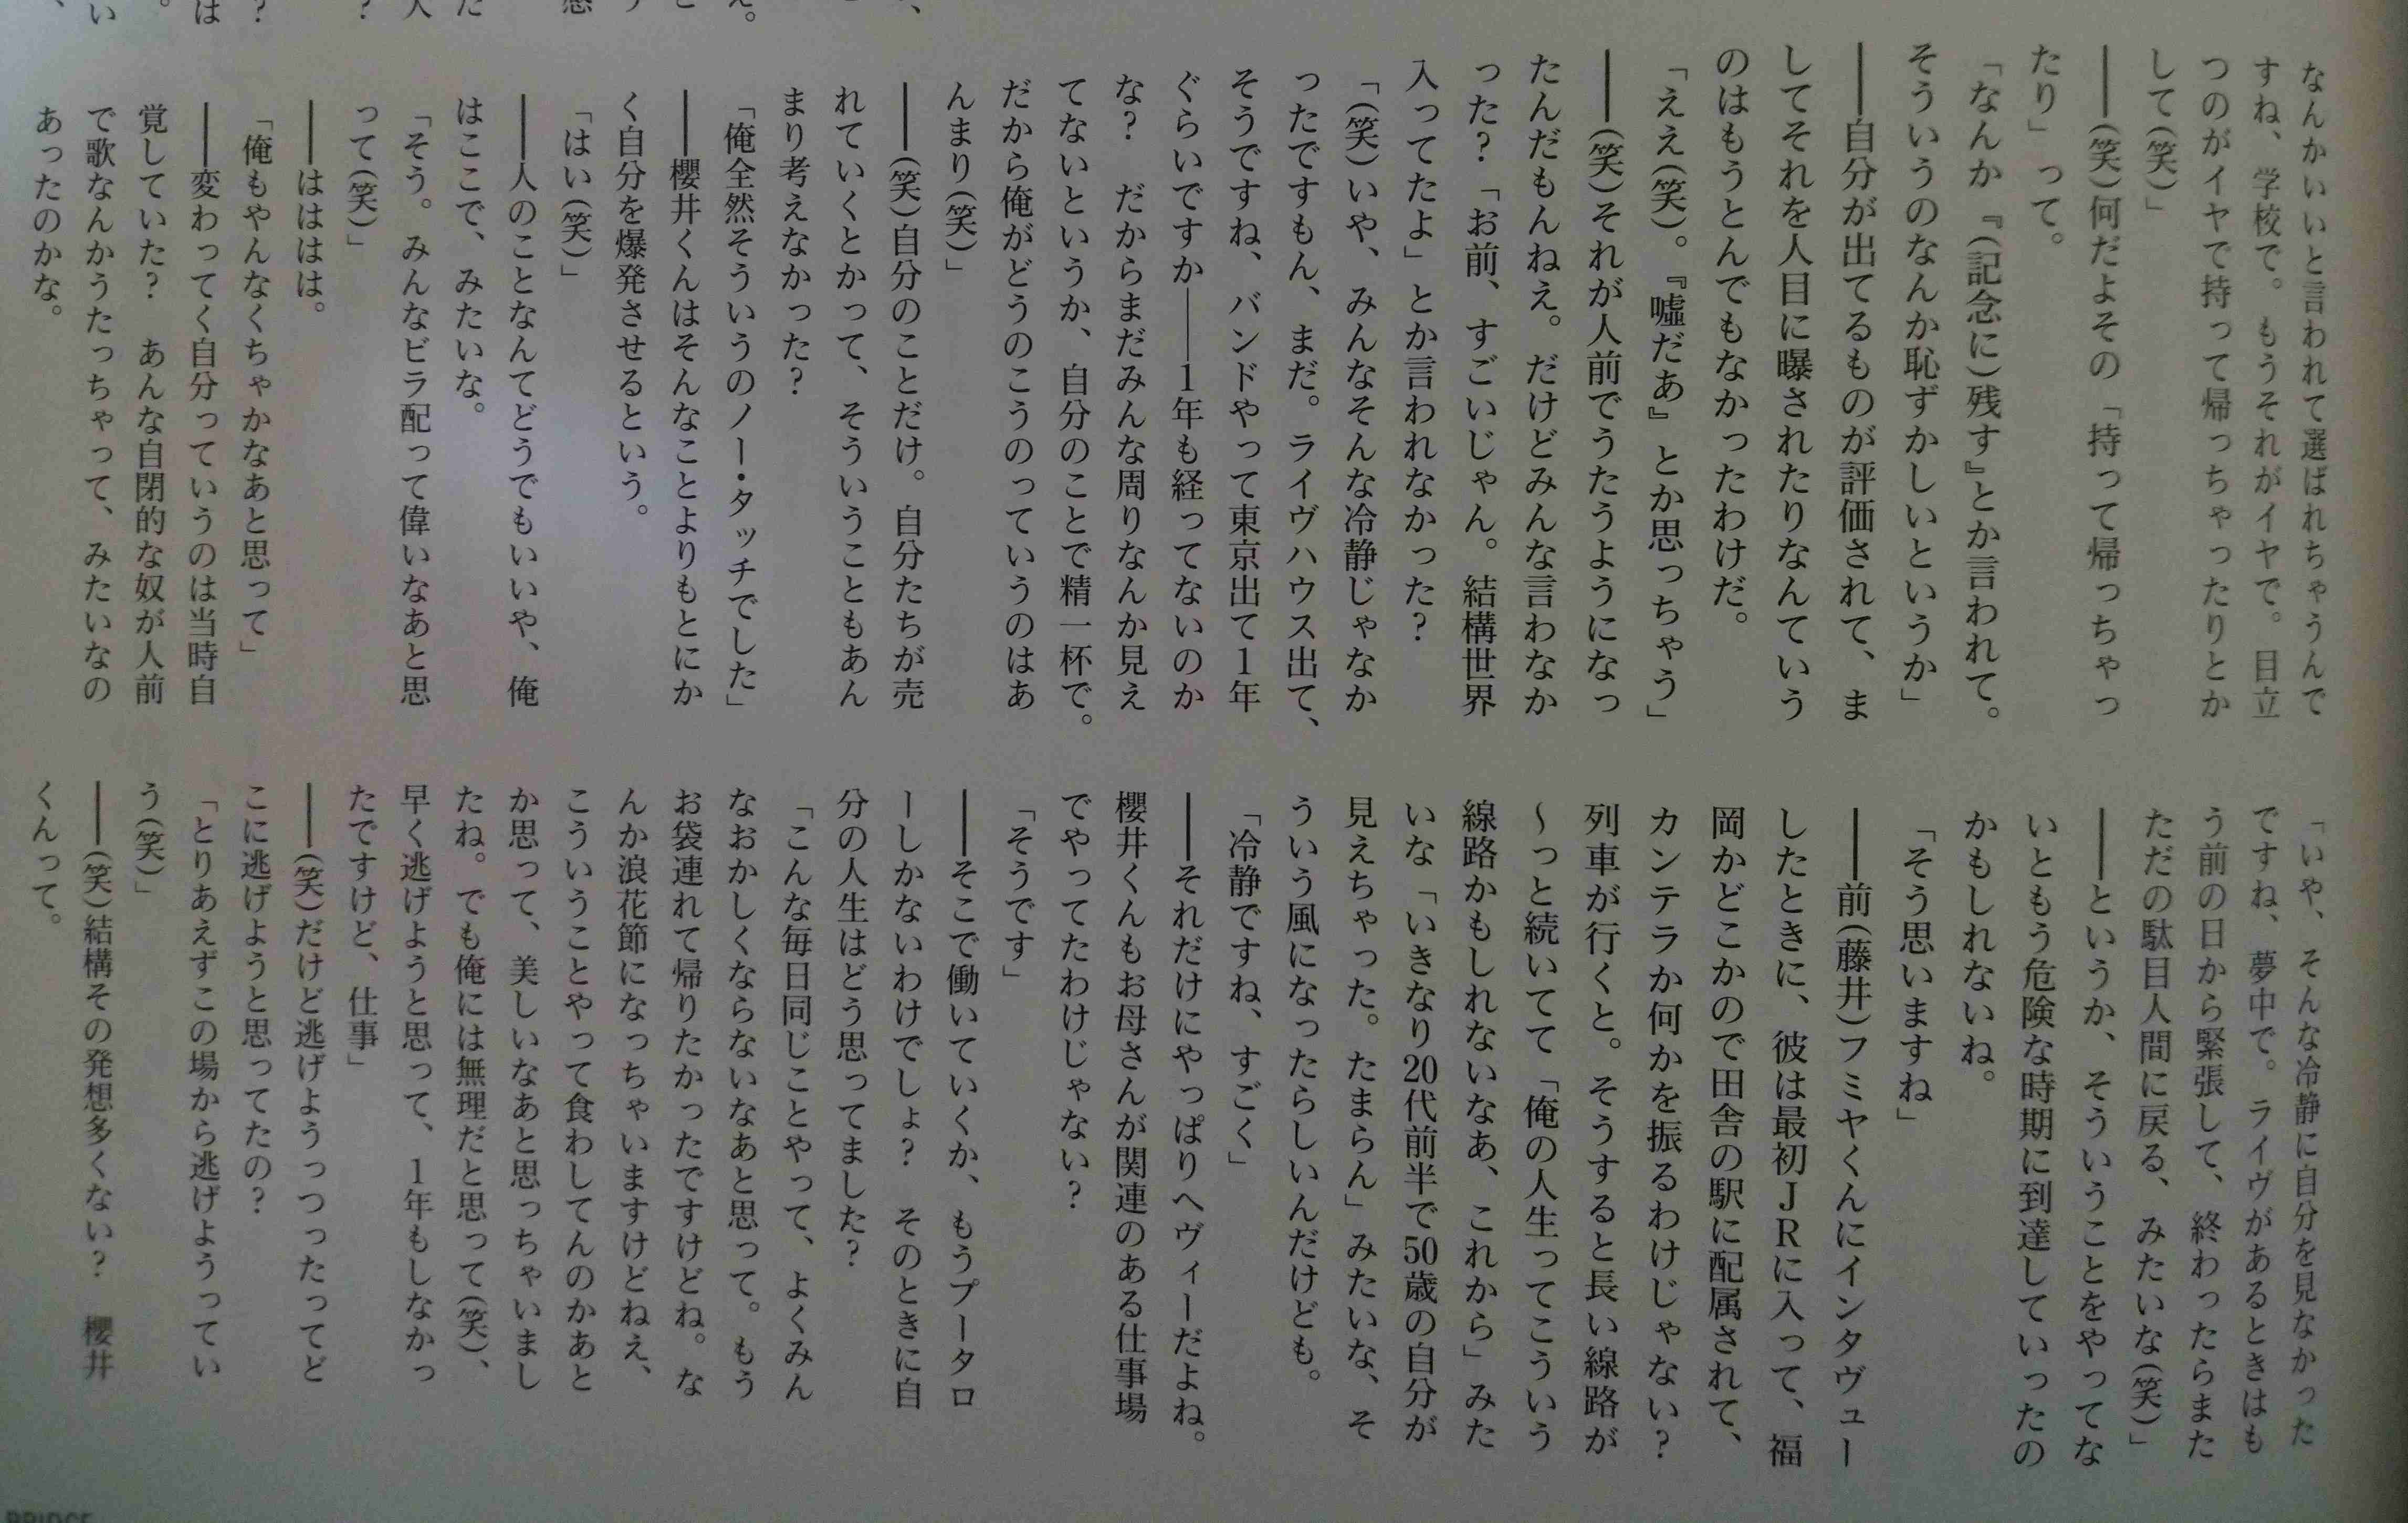 なんかいいと言われて選ばれちゃうんで
すね、学校で。もうそれがイヤで。目立
つのがイヤで持って帰っちゃったりとか
して(笑)」
――(笑)何だよその「持って帰っちゃっ
たり」って。
「なんか『(記念に)残す』とか言われて。
そういうのなんか恥ずかしいというか」
――自分が出てるものが評価されて、ま
してそれを人目に曝されたりなんていう
のはもうとんでもなかったわけだ。
「ええ(笑)。『嘘だあ』とか思っちゃう」
――(笑)それが人前でうたうようになっ
たんだもんねえ。だけどみんな言わなか
った?「お前、すごいじゃん。結構世界
入ってたよ」とか言われなかった?
「(笑)いや、みんなそんな冷静じゃなか
ったですもん、まだ。ライヴハウス出て、
そうですね、バンドやって東京出て1年
ぐらいですか――1年も経ってないのか
な? だからまだみんな周りなんか見え
てないというか、自分のことで精一杯で。
だから俺がどうのこうのっていうのはあ
んまり(笑)」
――(笑)自分のことだけ。自分たちが売
れていくとかって、そういうこともあん
まり考えなかった?
「俺全然そういうのノー・タッチでした」
――櫻井くんはそんなことよりもとにか
く自分を爆発させるという。
「はい(笑)」
――人のことなんてどうでもいいや、俺
はここで、みたいな。
「そう。みんなビラ配って偉いなあと思
って(笑)」
――はははは。
「俺もやんなくちゃかなあと思って」
――変わってく自分っていうのは当時自
覚していた? あんな自閉的な奴が人前
で歌なんかうたっちゃって、みたいなの
あったのかな。
「いや、そんな冷静に自分を見なかった
ですね、夢中で。ライヴがあるときはも
う前の日から緊張して、終わったらまた
ただの駄目人間に戻る、みたいな(笑)」
――というか、そういうことをやってな
いともう危険な時期に到達していったの
かもしれないね。
「そう思いますね」
――前(藤井)フミヤくんにインタヴュー
したときに、彼は最初JRに入って、福
岡かどこかので田舎の駅に配属されて、
カンテラか何かを振るわけじゃない?
列車が行くと。そうすると長い線路が
～っと続いてて「俺の人生ってこういう
線路かもしれないなあ、これから」みた
いな「いきなり20代前半で50歳の自分が
見えちゃった。たまらん」みたいな、そ
ういう風になったらしいんだけども。
「冷静ですね、すごく」
――それだけにやっぱりヘヴィーだよね。
櫻井くんもお母さんが関連のある仕事場
でやってたわけじゃない?
「そうです」
――そこで働いていくか、もうプータロ
ーしかないわけでしょ? そのときに自
分の人生はどう思ってました?
「こんな毎日同じことやって、よくみん
なおかしくならないなあと思って。もう
お袋連れて帰りたかったですけどね。な
んか浪花節になっちゃいますけどねえ、
こういうことやって食わしてんのかあと
か思って、美しいなあと思っちゃいまし
たね。でも俺には無理だと思って(笑)、
早く逃げようと思って、1年もしなかっ
たですけど、仕事」
――(笑)だけど逃げようっつったってど
こに逃げようと思ってたの?
「とりあえずこの場から逃げようってい
う(笑)」
――(笑)結構その発想多くない? 櫻井
くんって。